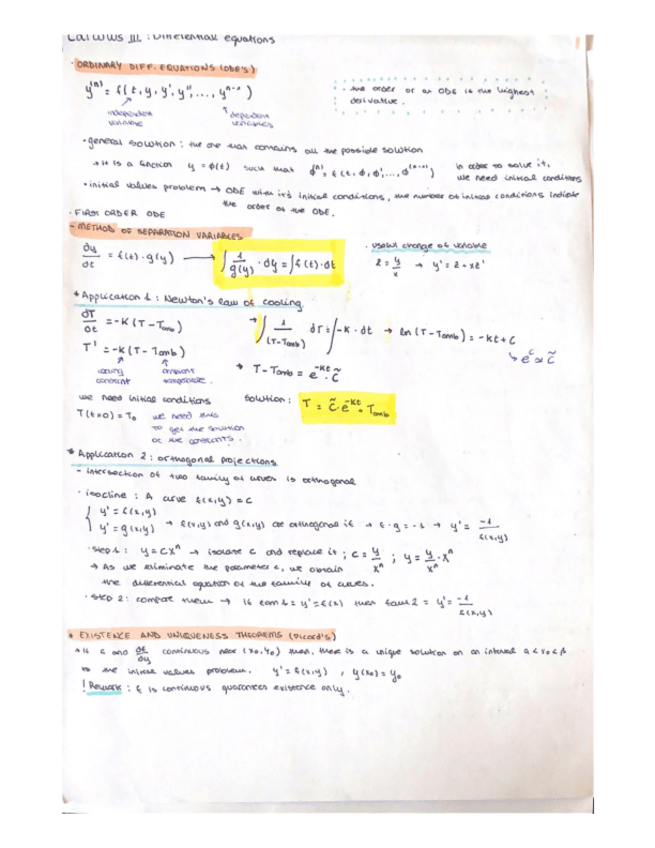 CALCULUS III : Differential equations
· ORDINARY DIFF. EQUATIONS (ODE's)
y⁽ⁿ⁾ = f(t, y, y', y'', ..., yⁿ⁻¹)
independent variable
dependent variables
· the order of an ODE is the highest derivative.
· general solution : the one that contains all the possible solution
→ it is a function y = ϕ(t) such that ϕ⁽ⁿ⁾ = f(t, ϕ, ϕ', ..., ϕ⁽ⁿ⁻¹⁾) in order to solve it, we need initial conditions
· initial values problem → ODE with it's initial conditions, the number of initial conditions indicate the order of the ODE.
· FIRST ORDER ODE
- METHOD OF SEPARATION VARIABLES
dy/dt = f(t) · g(y) → ∫ 1/g(y) · dy = ∫ f(t) · dt
· useful change of variable
z = y/x → y' = z + xz'
* Application 1 : Newton's law of cooling
dT/dt = -K (T - Tamb) → ∫ 1/(T-Tamb) dT = ∫ -K · dt → ln (T - Tamb) = -kt + C
T' = -K (T - Tamb)
→ T - Tamb = e^-kt · C̃
constant
ambient temperature.
we need initial conditions
T(t=0) = T₀ we need this to get the solution of the constants.
Solution : T = C̃ · e^-kt + Tamb
* Application 2 : orthogonal projections
- intersection of two family of curves is orthogonal
· isocline : A curve f(x,y) = C
{ y' = f(x,y)
{ y' = g(x,y) → f(x,y) and g(x,y) are orthogonal if → f · g = -1 → y' = -1/f(x,y)
· Step 1 : y = Cxⁿ → isolate C and replace it ; C = y/xⁿ ; y = y/xⁿ · xⁿ
→ As we eliminate the parameter C, we obtain the differential equation of the family of curves.
· STEP 2 : compare them → if fam 1 = y' = f(x) then fam 2 = y' = -1/f(x,y)
* EXISTENCE AND UNIQUENESS THEOREMS (Picard's)
→ If f and df/dy continuous near (x₀, y₀) then, there is a unique solution on an interval α < x₀ < β
to the initial values problem. y' = f(x,y) , y(x₀) = y₀
! Remark : f is continuous guarantees existence only.